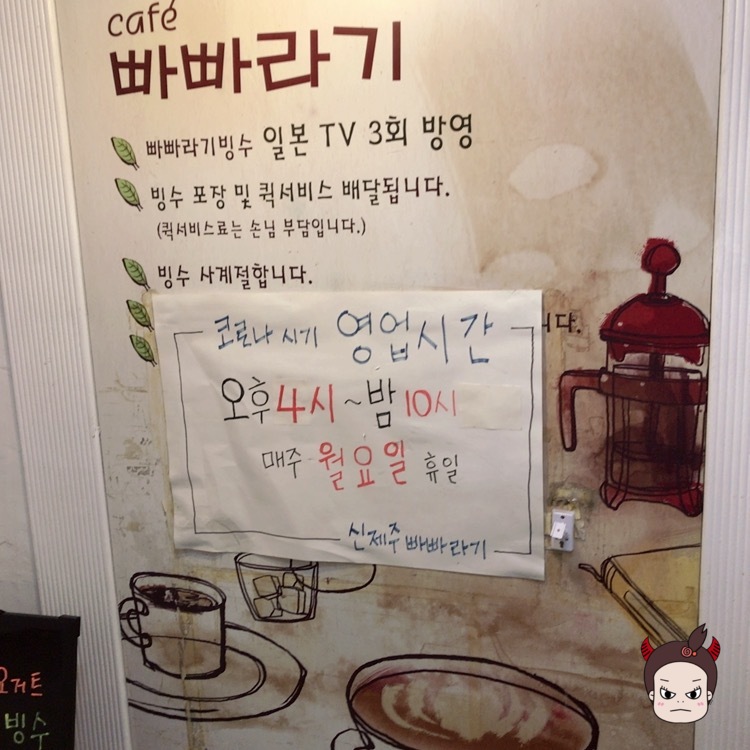 café
빠빠라기
빠빠라기빙수 일본 TV 3회 방영
빙수 포장 및 퀵서비스 배달됩니다.
(퀵서비스료는 손님 부담입니다.)
빙수 사계절합니다.
니다.
코로나 시기 영업시간
오후 4시 ~ 밤 10시
매주 월요일 휴일
신제주 빠빠라기
요거트
빙수